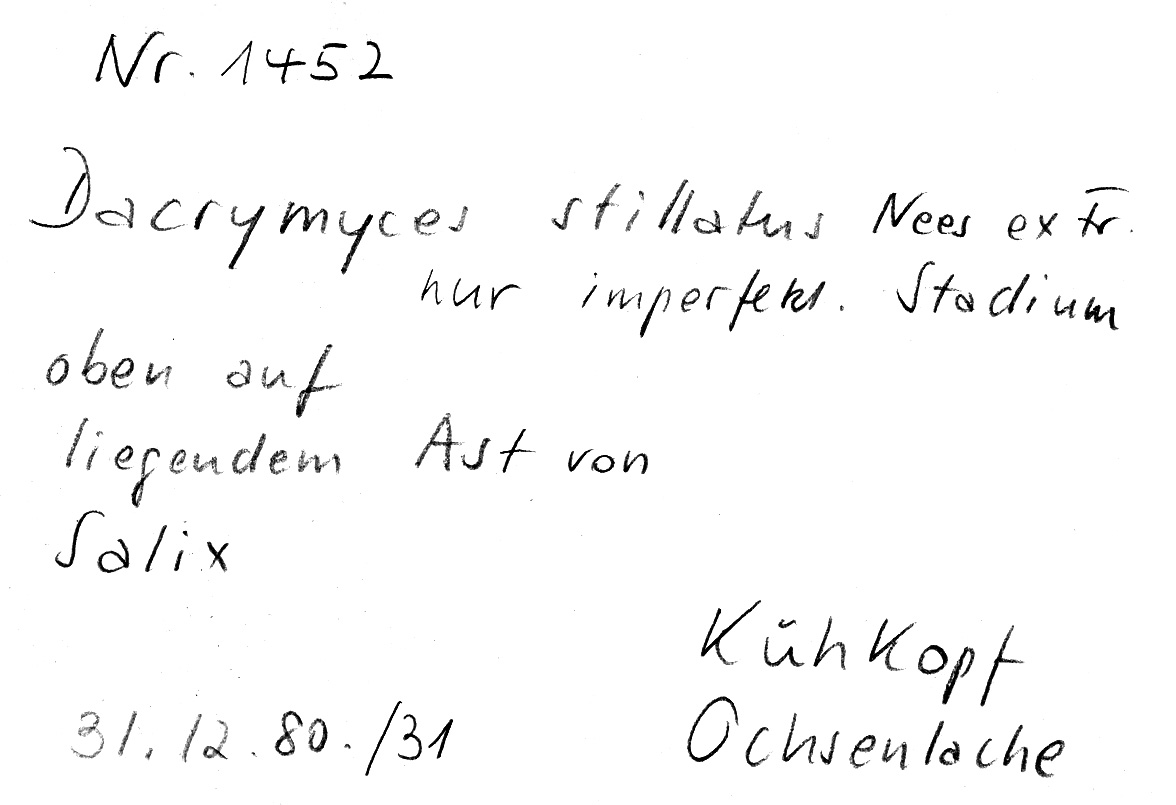 Nr. 1452
Dacrymyces stillatus Nees ex Fr.
nur imperfekt. Stadium
oben auf
liegendem Ast von
Salix
Kühkopf
31.12.80./31 Ochsenlache